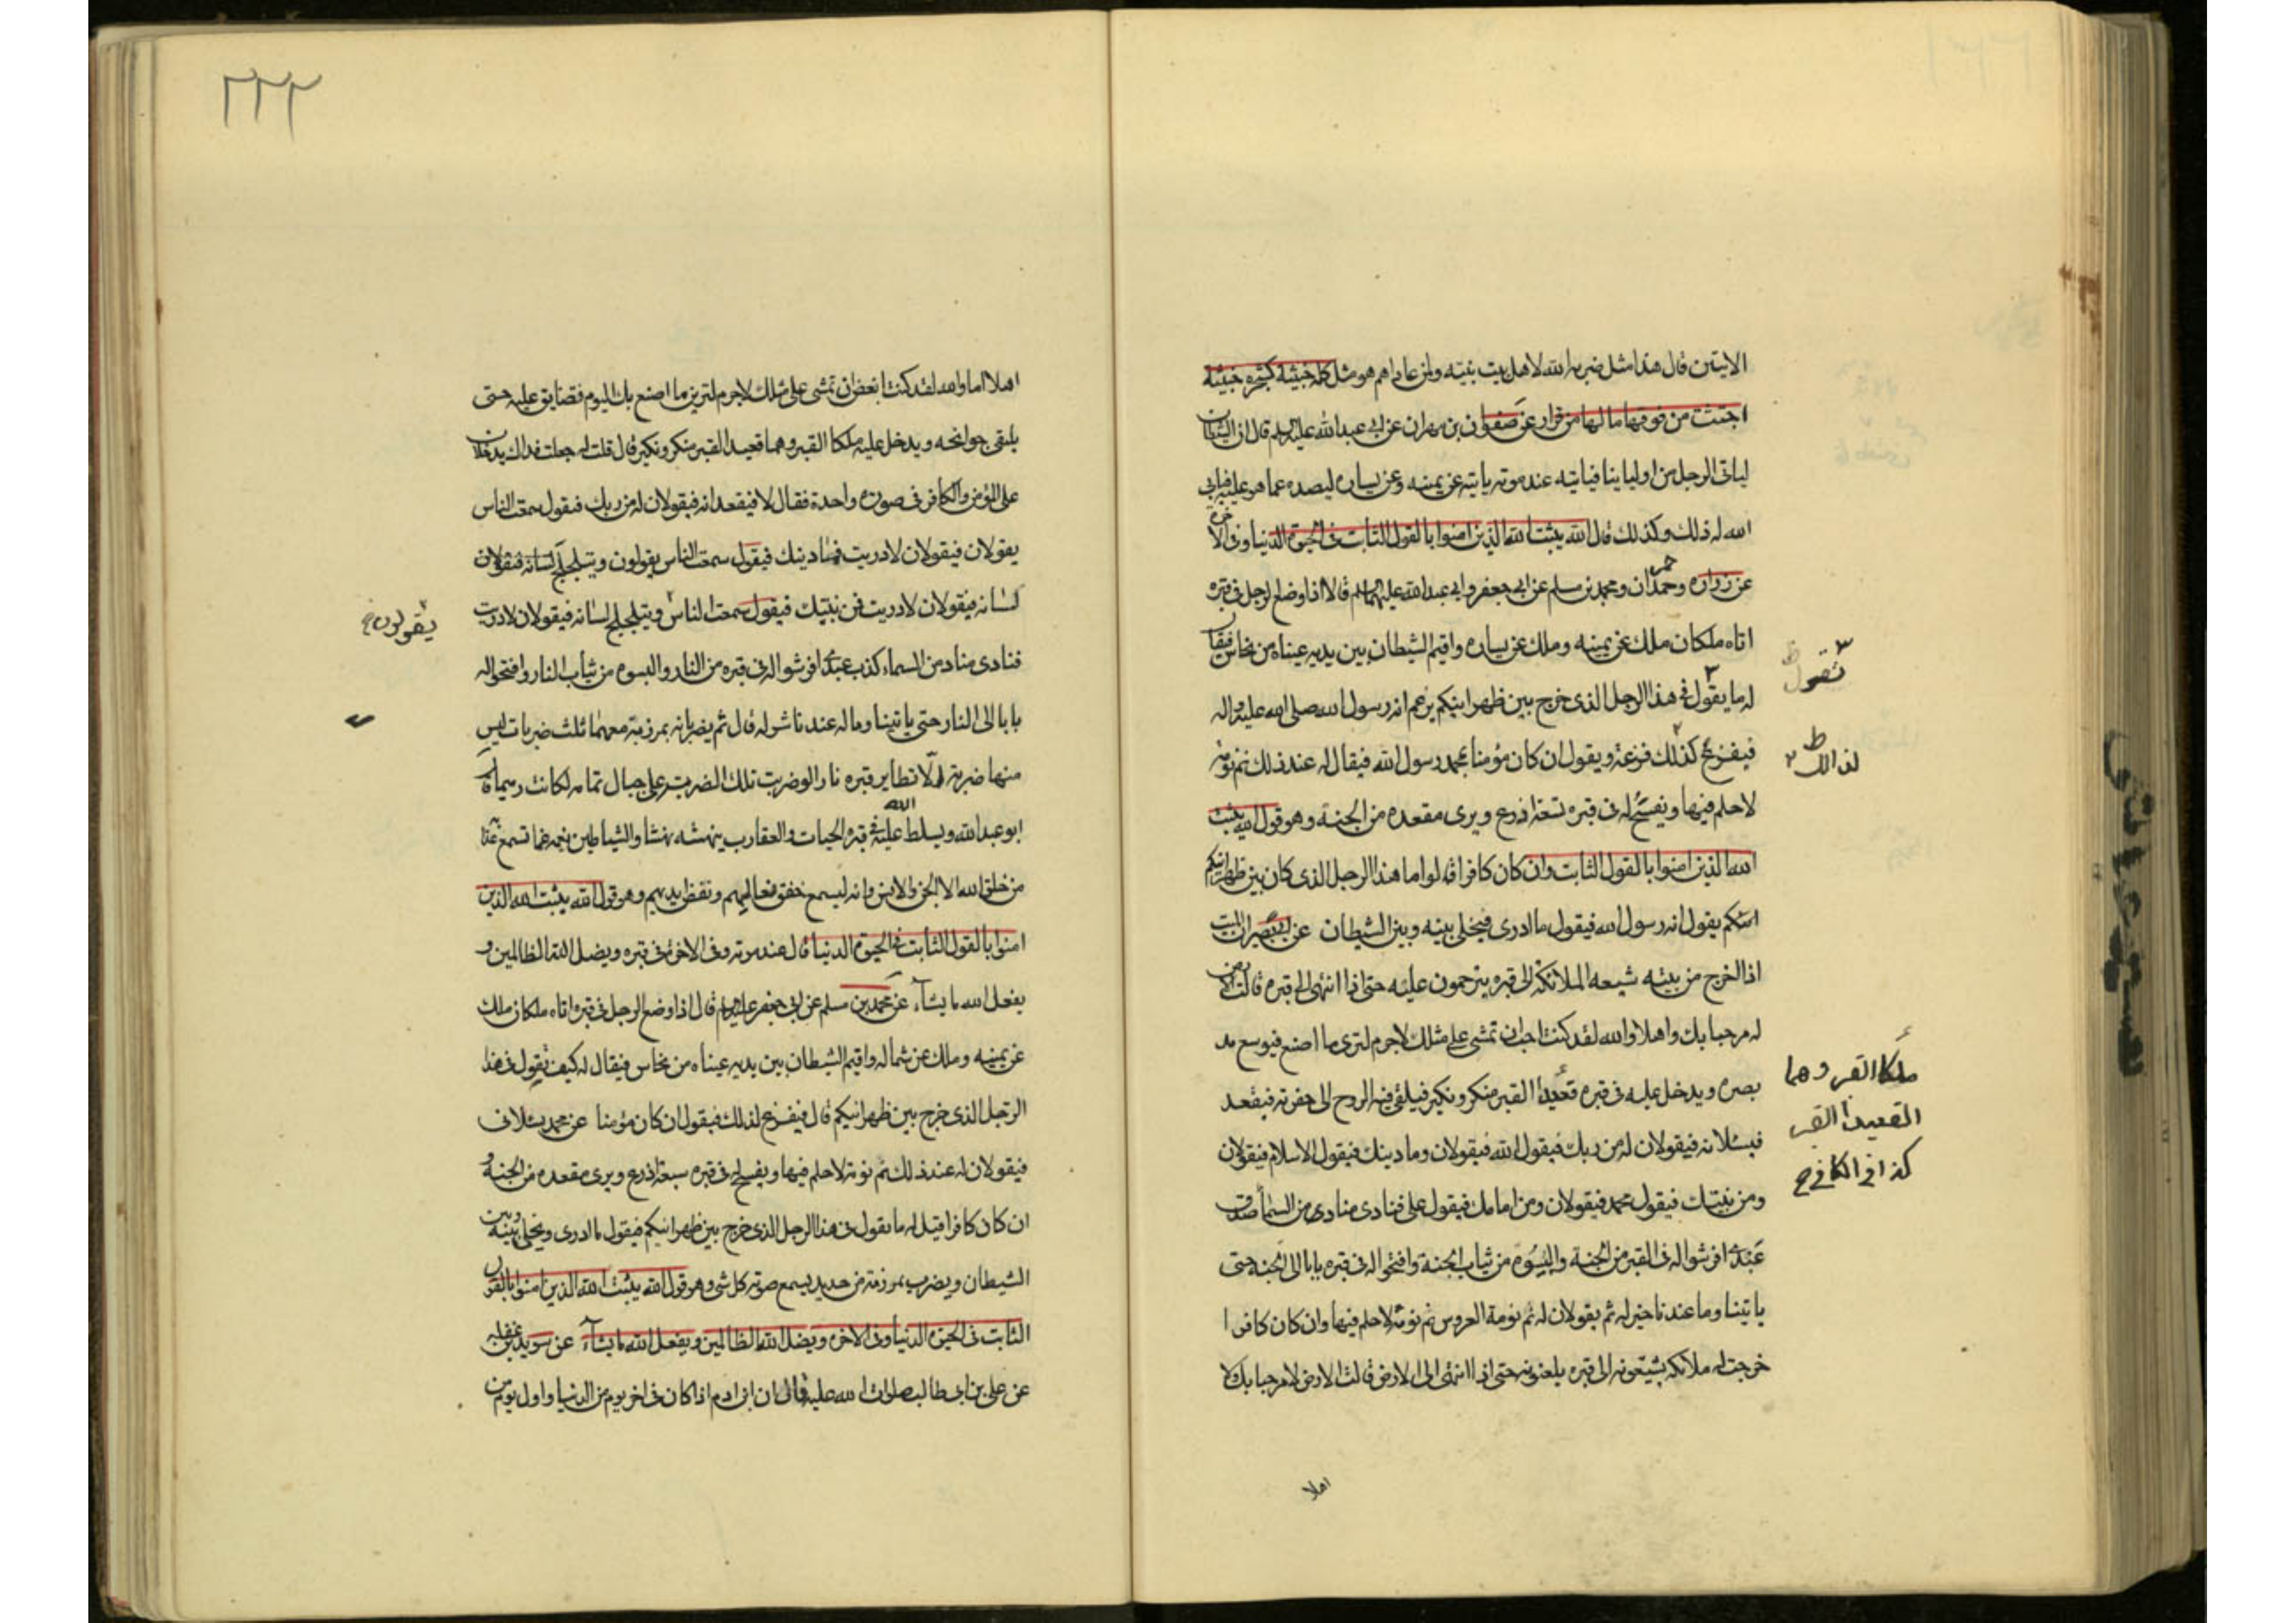 الايتين قال هذا مثل ضربه الله لاهل بيت نبيه ولمن عاداهم هو مثل كلمة خبيثة كشجرة خبيثة
اجتثت من فوقها ما لها من قرار عن صفوان بن مهران عن ابى عبد الله عليه السلم قال ان الشيطان
لياتى الرجل من اوليائنا فياتيه عند موته ياتيه عن يمينه وعن يساره ليصده عما هو عليه فيابى
الله له ذلك وكذلك قال الله يثبت الله الذين امنوا بالقول الثابت فى الحيوة الدنيا وفى الاخرة
عن زرارة وحمدان ومحمد بن مسلم عن ابى جعفر وابى عبد الله عليهما السلم قالا اذا وضع الرجل فى قبره
حمر
اتاه ملكان ملك عن يمينه وملك عن يساره واقيم الشيطان بين يديه عيناه من نحاس فيقال
له ما يقول فى هذا الرجل الذى خرج بين ظهرانيكم يزعم انه رسول الله صلى الله عليه واله
فيفزع كذلك فزعة ويقول ان كان مؤمنا محمد رسول الله فيقال له عند ذلك نم نومة
لا حلم فيها ويفسح له فى قبره تسعة اذرع ويرى مقعده من الجنة وهو قول الله يثبت
الله الذين امنوا بالقول الثابت وان كان كافرا قالوا ما هذا الرجل الذى كان بين ظهرانيكم
يقول انه رسول الله فيقول ما ادرى فيخلى بينه وبين الشيطان عن ابى بصير ان الميت
اذا اخرج من بيته شيعه الملائكة الى قبره يترحمون عليه حتى اذا انتهى الى قبره قالت الارض
له مرحبا بك واهلا والله لقد كنت احب ان تمشى على مثلك لاجرم لترى ما اصنع فيوسع مد
بصره ويدخل عليه فى قبره قعيدا القبر منكر ونكير فيلقى فيه الروح الى حقوته فيقعد
فيسئلانه فيقولان له من ربك فيقول الله فيقولان وما دينك فيقول الاسلام فيقولان
ومن نبيك فيقول محمد فيقولان ومن امامك فيقول على فنادى منادى من السماء صدق
عبدى افرشوا له فى القبر من الجنة والبسوه من ثياب الجنة وافتحوا له فى قبره بابا الى الجنة حتى
ياتينا وما عندنا خير له ثم يقولان له نم نومة العروس نم نومة لا حلم فيها وان كان كافرا
خرجت له ملائكة يشيعونه الى قبره يلعنونه حتى اذا انتهى الى الارض قالت الارض لا مرحبا بك ولا
اهلا
٣ تقول ظ
لذالك ظ ٢
ملكا القبر وهما
القعيدا القبر
كذا فى الكافى ح
٢٢٢
اهلا اما والله لقد كنت ابغض ان تمشى على مثلك لاجرم لترين ما اصنع بك اليوم فتضايق عليه حتى
يلتقى جوانحه ويدخل عليه ملكا القبر وهما قعيدا القبر منكر ونكير قال قلت له جعلت فداك يدخلان
على المؤمن والكافر فى صورة واحدة فقال لا فيقعدانه فيقولان له من ربك فيقول سمعت الناس
يقولان فيقولان لا دريت فما دينك فيقول سمعت الناس يقولون ويتلجلج لسانه فيقولان
لسانه فيقولان لا دريت فمن نبيك فيقول سمعت الناس ويتلجلج لسانه فيقولان لا دريت
فنادى مناد من السماء كذب عبدى افرشوا له فى قبره من النار والبسوه من ثياب النار وافتحوا له
بابا الى النار حتى ياتينا وما له عندنا شر له قال ثم يضربانه بمرزبة معهما ثلث ضربات ليس
منها ضربة الا تطاير قبره نارا لو ضربت تلك الضربة على جبال تهامة لكانت رميما قال
ابو عبد الله ويسلط الله عليه فى قبره الحيات والعقارب ينهشه نهشا والشياطين يغمه غما تسمع عذابه
من خلق الله الا الجن والانس وانه ليسمع خفق نعالهم ونفض ايديهم وهو قول الله يثبت الله الذين
امنوا بالقول الثابت فى الحيوة الدنيا قال عند موته وفى الاخرة فى قبره ويضل الله الظالمين و
يفعل الله ما يشآء عن محمد بن مسلم عن ابى جعفر عليه السلم قال اذا وضع الرجل فى قبره اتاه ملكان ملك
عن يمينه وملك عن شماله واقيم الشيطان بين يديه عيناه من نحاس فيقال له كيف تقول فى هذا
الرجل الذى خرج بين ظهرانيكم قال فيفزع لذلك فيقول ان كان مؤمنا عن محمد يسئلانى
فيقولان له عند ذلك نم نومة لا حلم فيها ويفسح له فى قبره سبعة اذرع ويرى مقعده من الجنة و
ان كان كافرا قيل له ما تقول فى هذا الرجل الذى خرج بين ظهرانيكم فيقول ما ادرى ويخلى بينه وبين
الشيطان ويضرب بمرزبة من حديد يسمع صوته كل شىء وهو قول الله يثبت الله الذين امنوا بالقول
الثابت فى الحيوة الدنيا وفى الاخرة ويضل الله الظالمين ويفعل الله ما يشآء عن سويد بن غفلة
عن على بن ابى طالب صلوات الله عليه قال ان ابن ادم اذا كان فى اخر يوم من الدنيا واول يوم من
يقولون خ